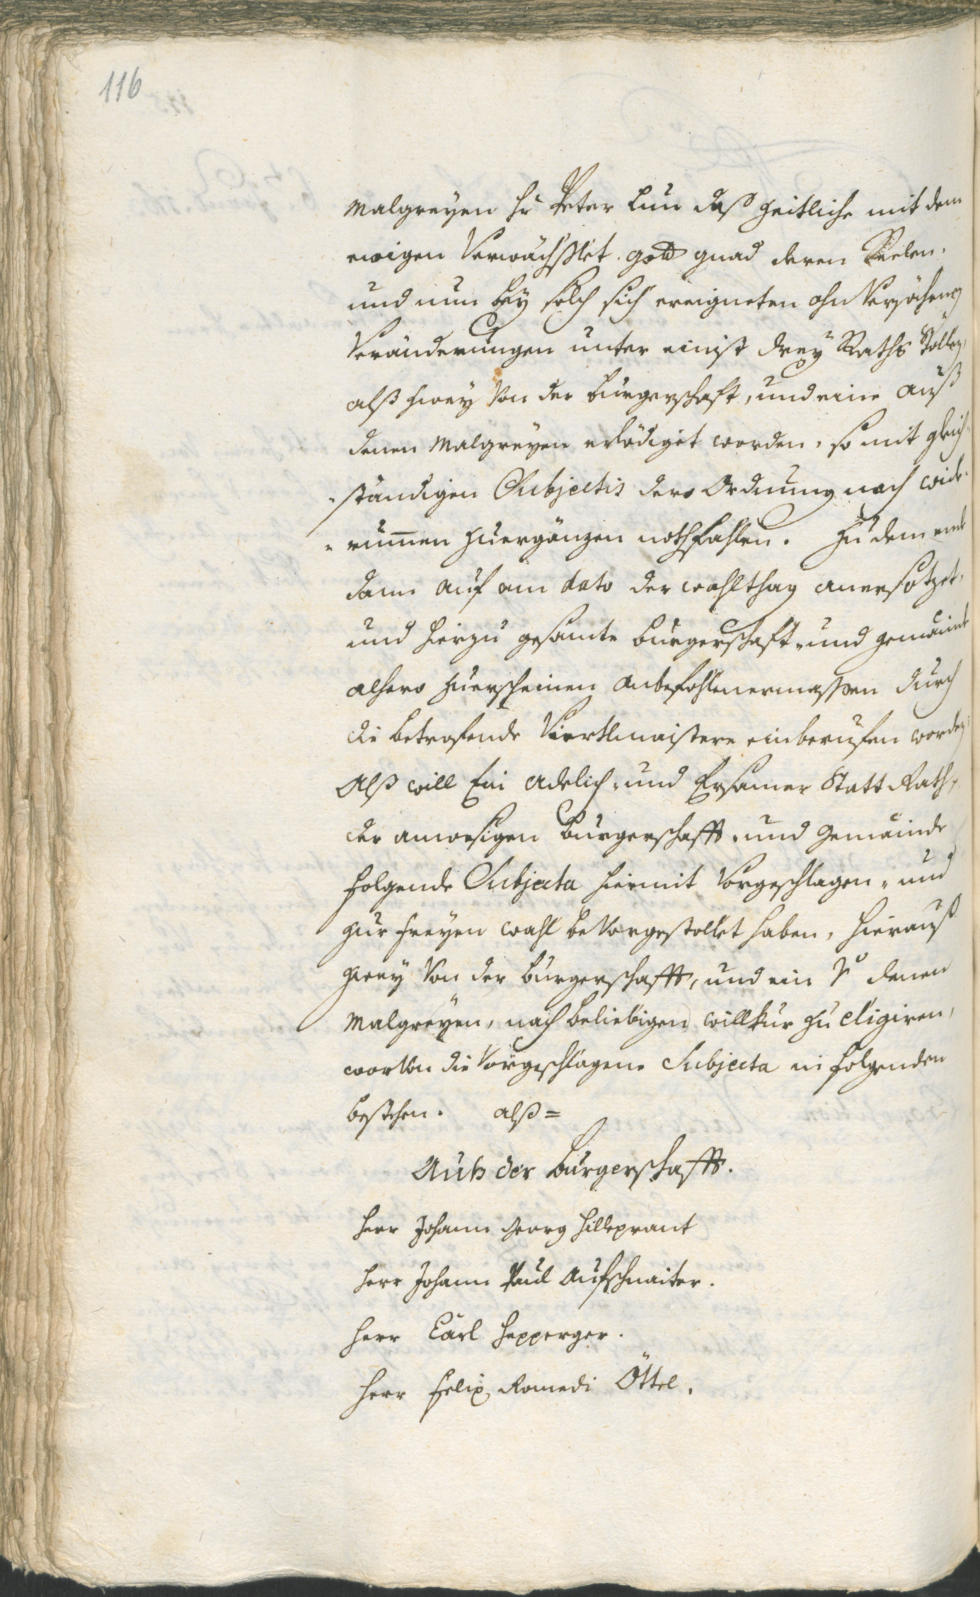 116
Malgreyen Hr Peter Lun daß Zeitliche mit dem
ewigen Verwächßlet. gott gnad deren Seelen.
und nun bey solch sich ereigneten ohn Versächenen
Veränderungen unter einist drey Raths Stellen,
alß zwey Von der Burgerschaft, und eine auß
denen Malgreyen erlödiget worden, so mit gleich-
-ständigen Subjectis dero Ordnung nach wide-
-rummen zuergänzen nothfahlen. Zu dem ende
dann auf am dato der wahlthag anersötzet,
und hierzu gesamte burgerschaft, und gemainde
alhero zuerscheinen anbefohlenermassen durch
die betrefende Viertlmaistere einberufen worden,
Alß will Ein Adelich- und Ersamer Statt Rath,
der anwesigen burgerschafft, und Gemainde
folgende Subjecta hiermit Vorgeschlagen, und
zur freyen wahl beVorgestellet haben, hierauß
zwey Von der burgerschafft, und ein Vo denen
Malgreyen, nach beliebigen willkur zu eligiren,
worVon die Vorgeschlagene Subjecta in folgenden
bestehen. alß =
Auß der burgerschafft.
Herr Johann Georg Hilleprant
Herr Johann Paul Aufschnaiter.
Herr Carl Hepperger.
Herr Felix Romedi Öttel.